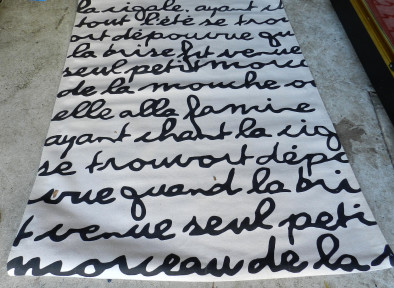 la cigale, ayant
tout l'été se trou
ort dépouvue qu
la brise fut venue
seul petit morc
de la mouche o
elle alla famine
ayant chant la cig
se trouvort dépo
vue quand la bri
t venue seul peti
morceau de la